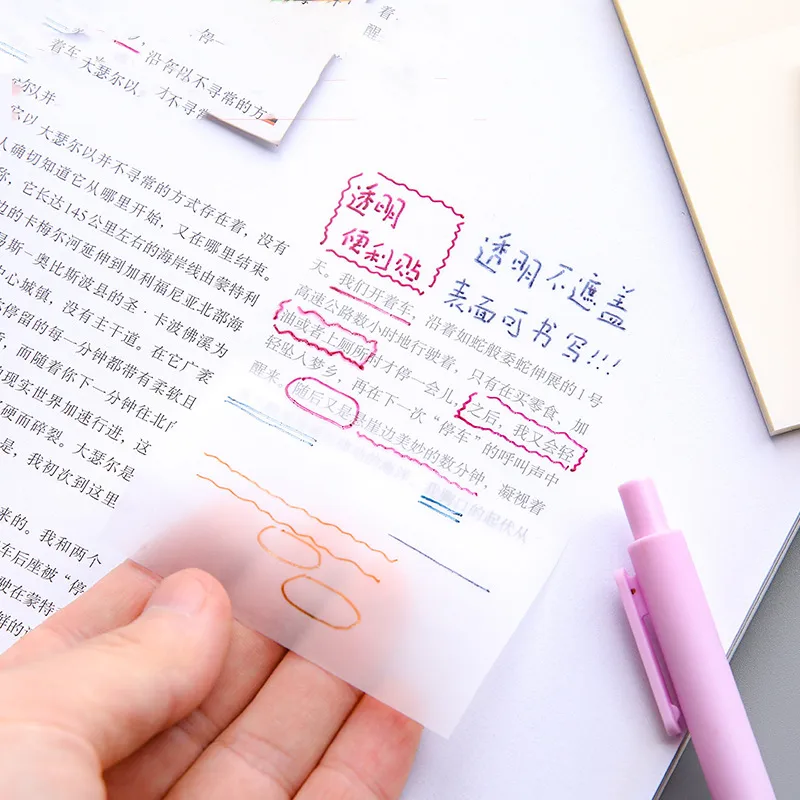 着车
沿等以不寻常的方
大瑟尔以
才不寻常
着.
醒
尔以并
它以 大瑟尔以并不寻常的方式存在着，没有
人确切知道它从哪里开始，又在哪里结束。
称，它长达145公里左右的海岸线由蒙特利
边的卡梅尔河延伸到加利福尼亚北部海
易斯－奥比斯波县的圣·卡波佛溪为
中心城镇，没有主干道。在它广袤
停留的每一分钟都带有柔软且
，而随着你下一分钟往北
现实世界加速行进，这
硬而碎裂。大瑟尔是
是，我初次到这里
来的。我和两个
车后座被“停
驶在蒙特
鲜的
透明
便利贴
透明不遮盖
表面可书写!!!
天。我们开着车，沿着如蛇般委蛇伸展的1号
高速公路数小时地行驶着，只有在买零食，加
油或者上厕所时才停一会儿，之后，我又会轻
轻坠入梦乡，再在下一次“停车”的呼叫声中
醒来。随后又是悬崖边美妙的数分钟，凝视着
的起伏从